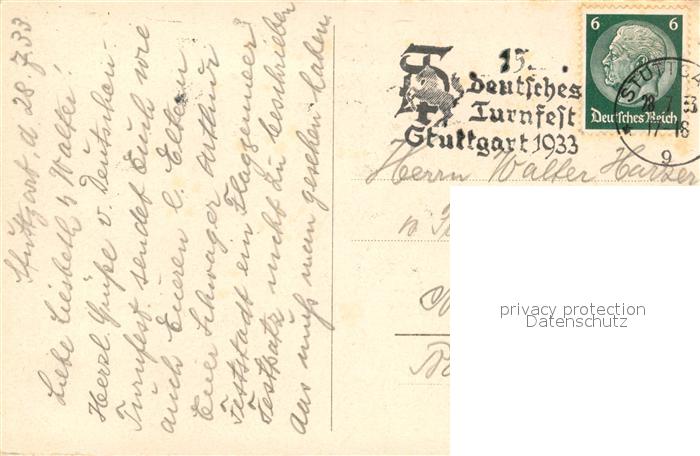 Stuttgart, d. 28.7.33
Liebe Liesbeth u Walter!
Herzl. Grüße v. Deutschen
Turnfest sendet Euch wie
auch Eueren l. Eltern
Euer Schwager Arthur
Feststadt ein Flaggenmeer!
Festplatz nicht zu beschreiben
das muß man gesehen haben.
15.
Deutsches
Turnfest
Stuttgart 1933
6 6
Deutsches Reich
STUTTGA
28.7.33
17-18
9
Herrn Walter Harzer
privacy protection
Datenschutz